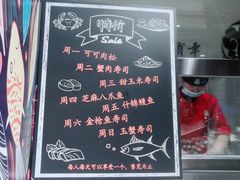 特价
Sale
周一 可可肉松
周二 蟹肉寿司
周三 甜玉米寿司
周四 芝麻八爪鱼
周五 什锦鲮鱼
周六 金枪鱼寿司
周日 玉蟹寿司
每人每天可以享受一个，售完为止